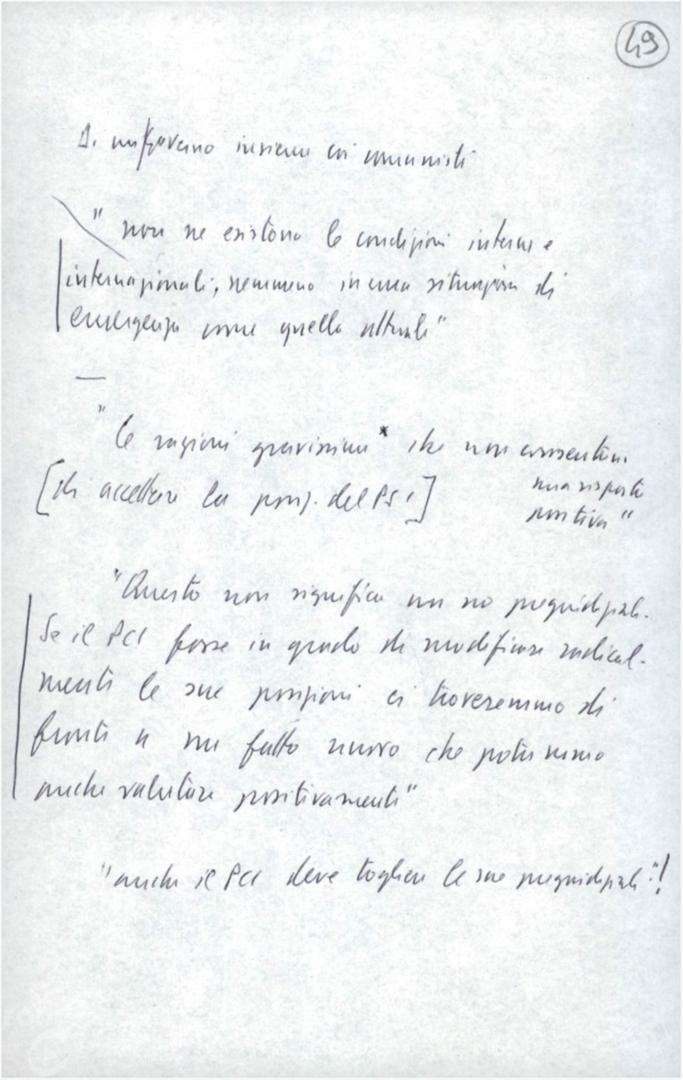 49
Di un governo insieme ai comunisti
" non ne esistono le condizioni interne e
internazionali, nemmeno in una situazione di
emergenza come quella attuale"
—
"le ragioni gravissime* che non consentono
una risposta
[di accettare la prop. del PSI]
positiva"
"Questo non significa un no pregiudiziale.
Se il PCI fosse in grado di modificare radical-
mente le sue posizioni ci troveremmo di
fronte a un fatto nuovo che potremmo
anche valutare positivamente"
"anche il PCI deve togliere le sue pregiudiziali"!